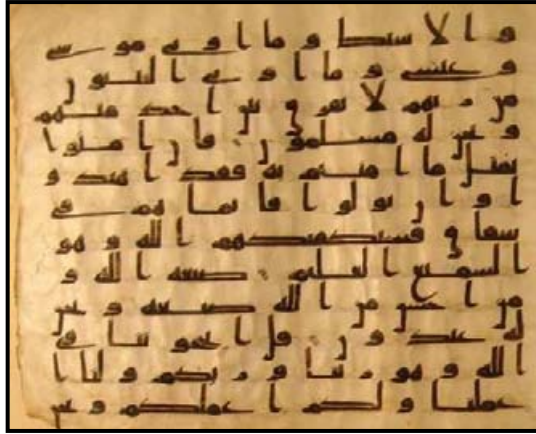 والاسبط وما اوتى موسى
وعيسى وما اوتى النبيون
من ربهم لا نفرق بين احد منهم
ونحن له مسلمون فان امنوا
بمثل ما امنتم به فقد اهتدو
ا وان تولوا فانما هم فى
شقاق فسيكفيكهم الله وهو
السميع العليم صبغه الله و
من احسن من الله صبغه ونحن
له عبدون قل اتحجوننا فى
الله وهو ربنا وربكم ولنا ا
عملنا ولكم اعملكم ونحن